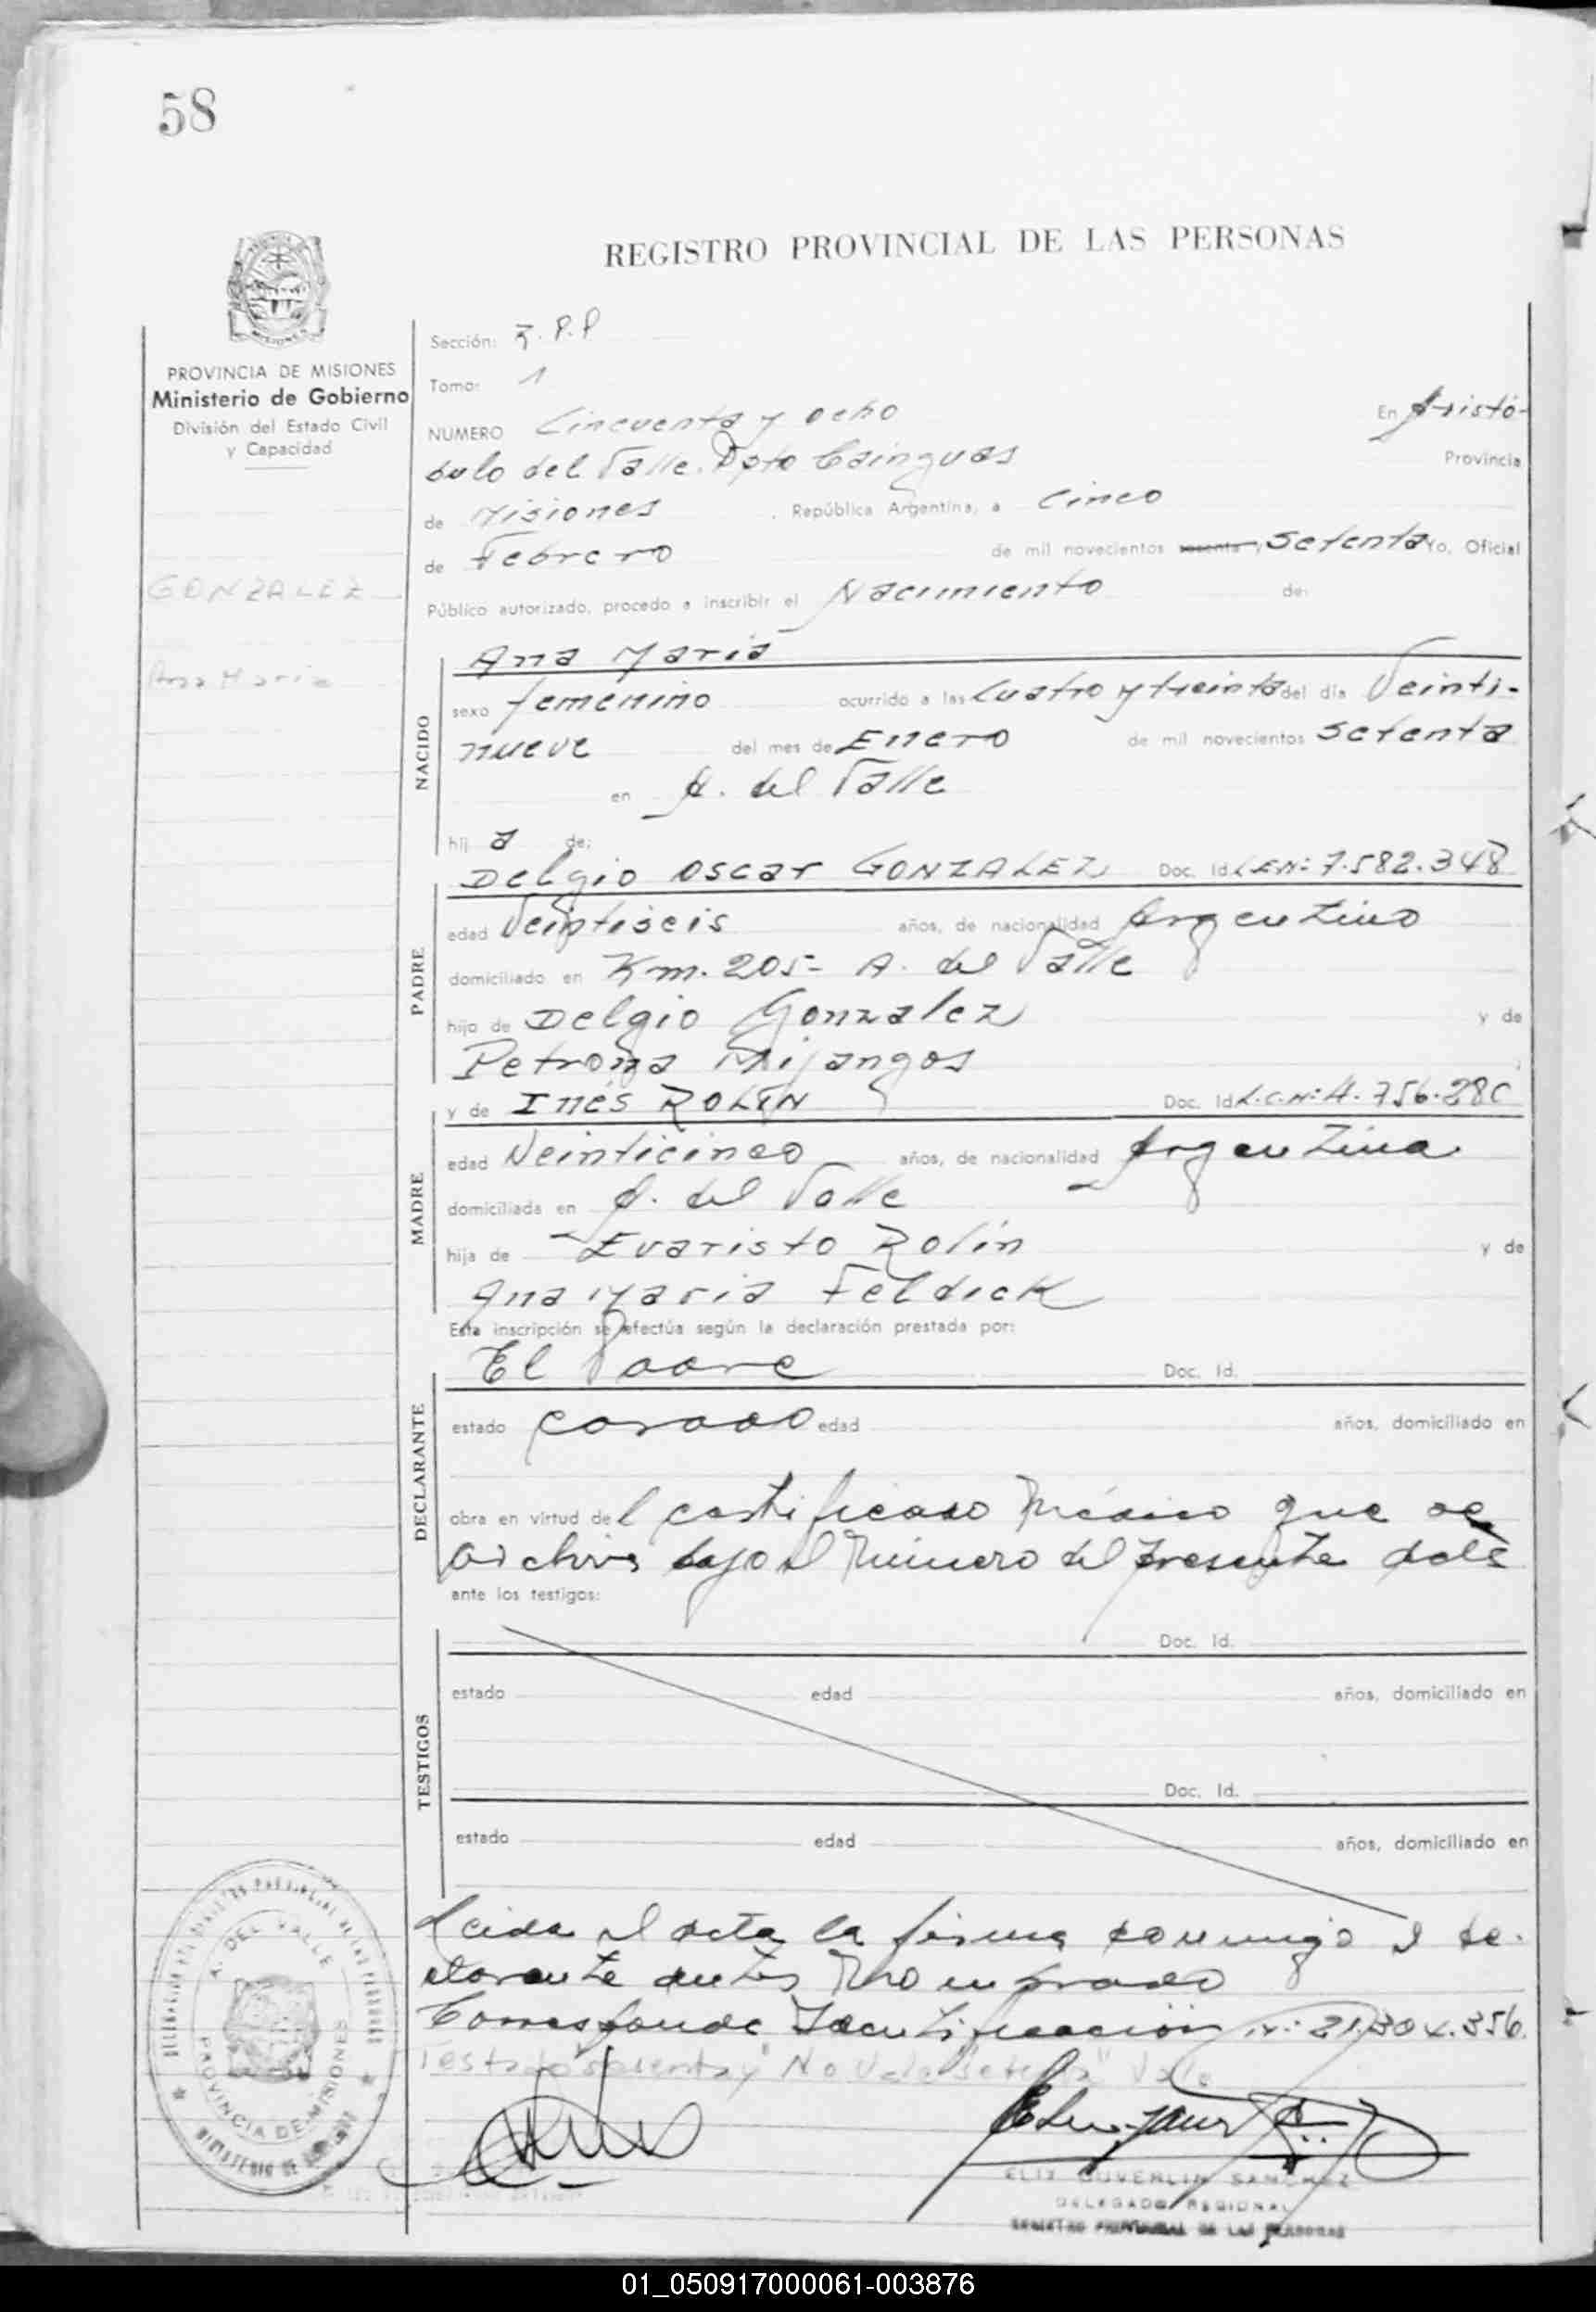 58
REGISTRO PROVINCIAL DE LAS PERSONAS
PROVINCIA DE MISIONES
Ministerio de Gobierno
División del Estado Civil
y Capacidad
GONZALEZ
Ana Maria
Sección: R.P.P
Tomo: 1
NUMERO Cincuenta y ocho En Aristó-
bulo del Valle. Dpto Cainguas Provincia
de Misiones , República Argentina, a Cinco
de Febrero de mil novecientos sesenta y Setenta Yo, Oficial
Público autorizado, procedo a inscribir el Nacimiento de:
Ana Maria
NACIDO
sexo femenino ocurrido a las Cuatro y treinta del día Veinti-
nueve del mes de Enero de mil novecientos Setenta
en A. del Valle
hij a de:
Delgio Oscar GONZALEZ Doc. Id. L.E.N: 7.582.348
PADRE
edad Veintiseis años, de nacionalidad Argentino
domiciliado en Km. 205- A. del Valle
hijo de Delgio Gonzalez y de
Petrona Mijangos
y de Inés ROLIN Doc. Id. L.C.N: 4.756.280
MADRE
edad Veinticinco años, de nacionalidad Argentina
domiciliada en A. del Valle
hija de Evaristo Rolín y de
Ana Maria Feldick
Esta inscripción se efectúa según la declaración prestada por:
El Padre Doc. Id.
DECLARANTE
estado Casado edad años, domiciliado en
obra en virtud del certificado Médico que se
archiva bajo el Número del presente acta
ante los testigos:
Doc. Id.
TESTIGOS
estado edad años, domiciliado en
Doc. Id.
estado edad años, domiciliado en
Leida el acta la firma conmigo el de-
clarante antes Nombrado
Corresponde Identificación N: 21.304.356.
Testado "sesenta y" No Vale "Setenta" Vale
A. DEL VALLE
PROVINCIA DE MISIONES
ELIX GUVERLIN SANCHEZ
DELEGADO REGIONAL
REGISTRO PROVINCIAL DE LAS PERSONAS
01_050917000061-003876